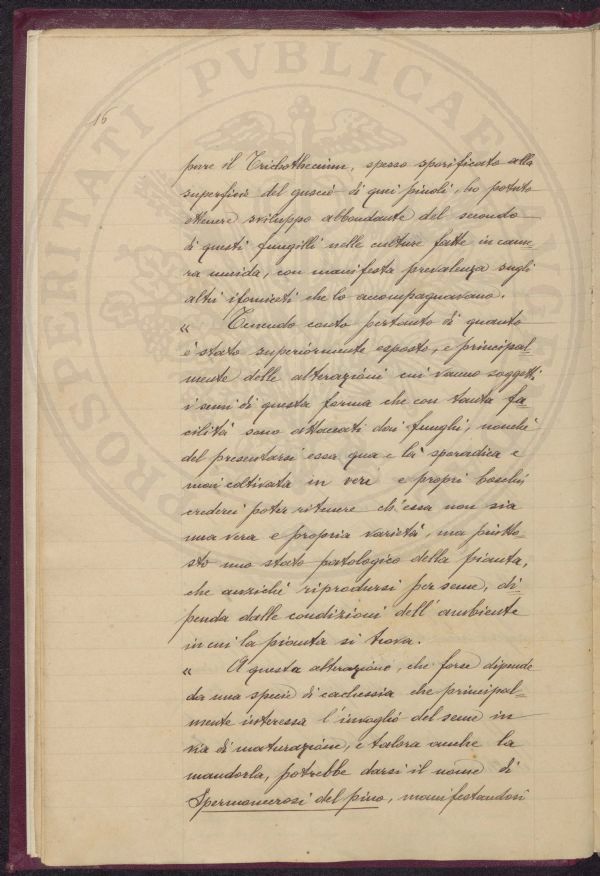 16
pure il Trichothecium, spesso sporificato alla
superficie del guscio di quei pinoli, ho potuto
ottenere sviluppo abbondante del secondo
di questi fungilli nelle culture fatte in came-
ra umida, con manifesta prevalenza sugli
altri ifomiceti che lo accompagnavano.
" Tenendo conto pertanto di quanto
è stato superiormente esposto, e principal=
mente delle alterazioni cui vanno soggetti
i semi di questa forma che con tanta fa=
cilità sono attaccati dai funghi, nonchè
del presentarsi essa qua e là sporadica e
non coltivata in veri e propri boschi
crederei poter ritenere ch'essa non sia
una vera e propria varietà, ma piutto-
sto uno stato patologico della pianta,
che anzichè riprodursi per seme, di=
penda dalle condizioni dell'ambiente
in cui la pianta si trova.
" A questa alterazione, che forse dipende
da una specie di cachessia che principal=
mente interessa l'invoglio del seme in
via di maturazione, e talora anche la
mandorla, potrebbe darsi il nome di
Spermonecrosi del pino, manifestandosi
PROSPERITATI PVBLICAE